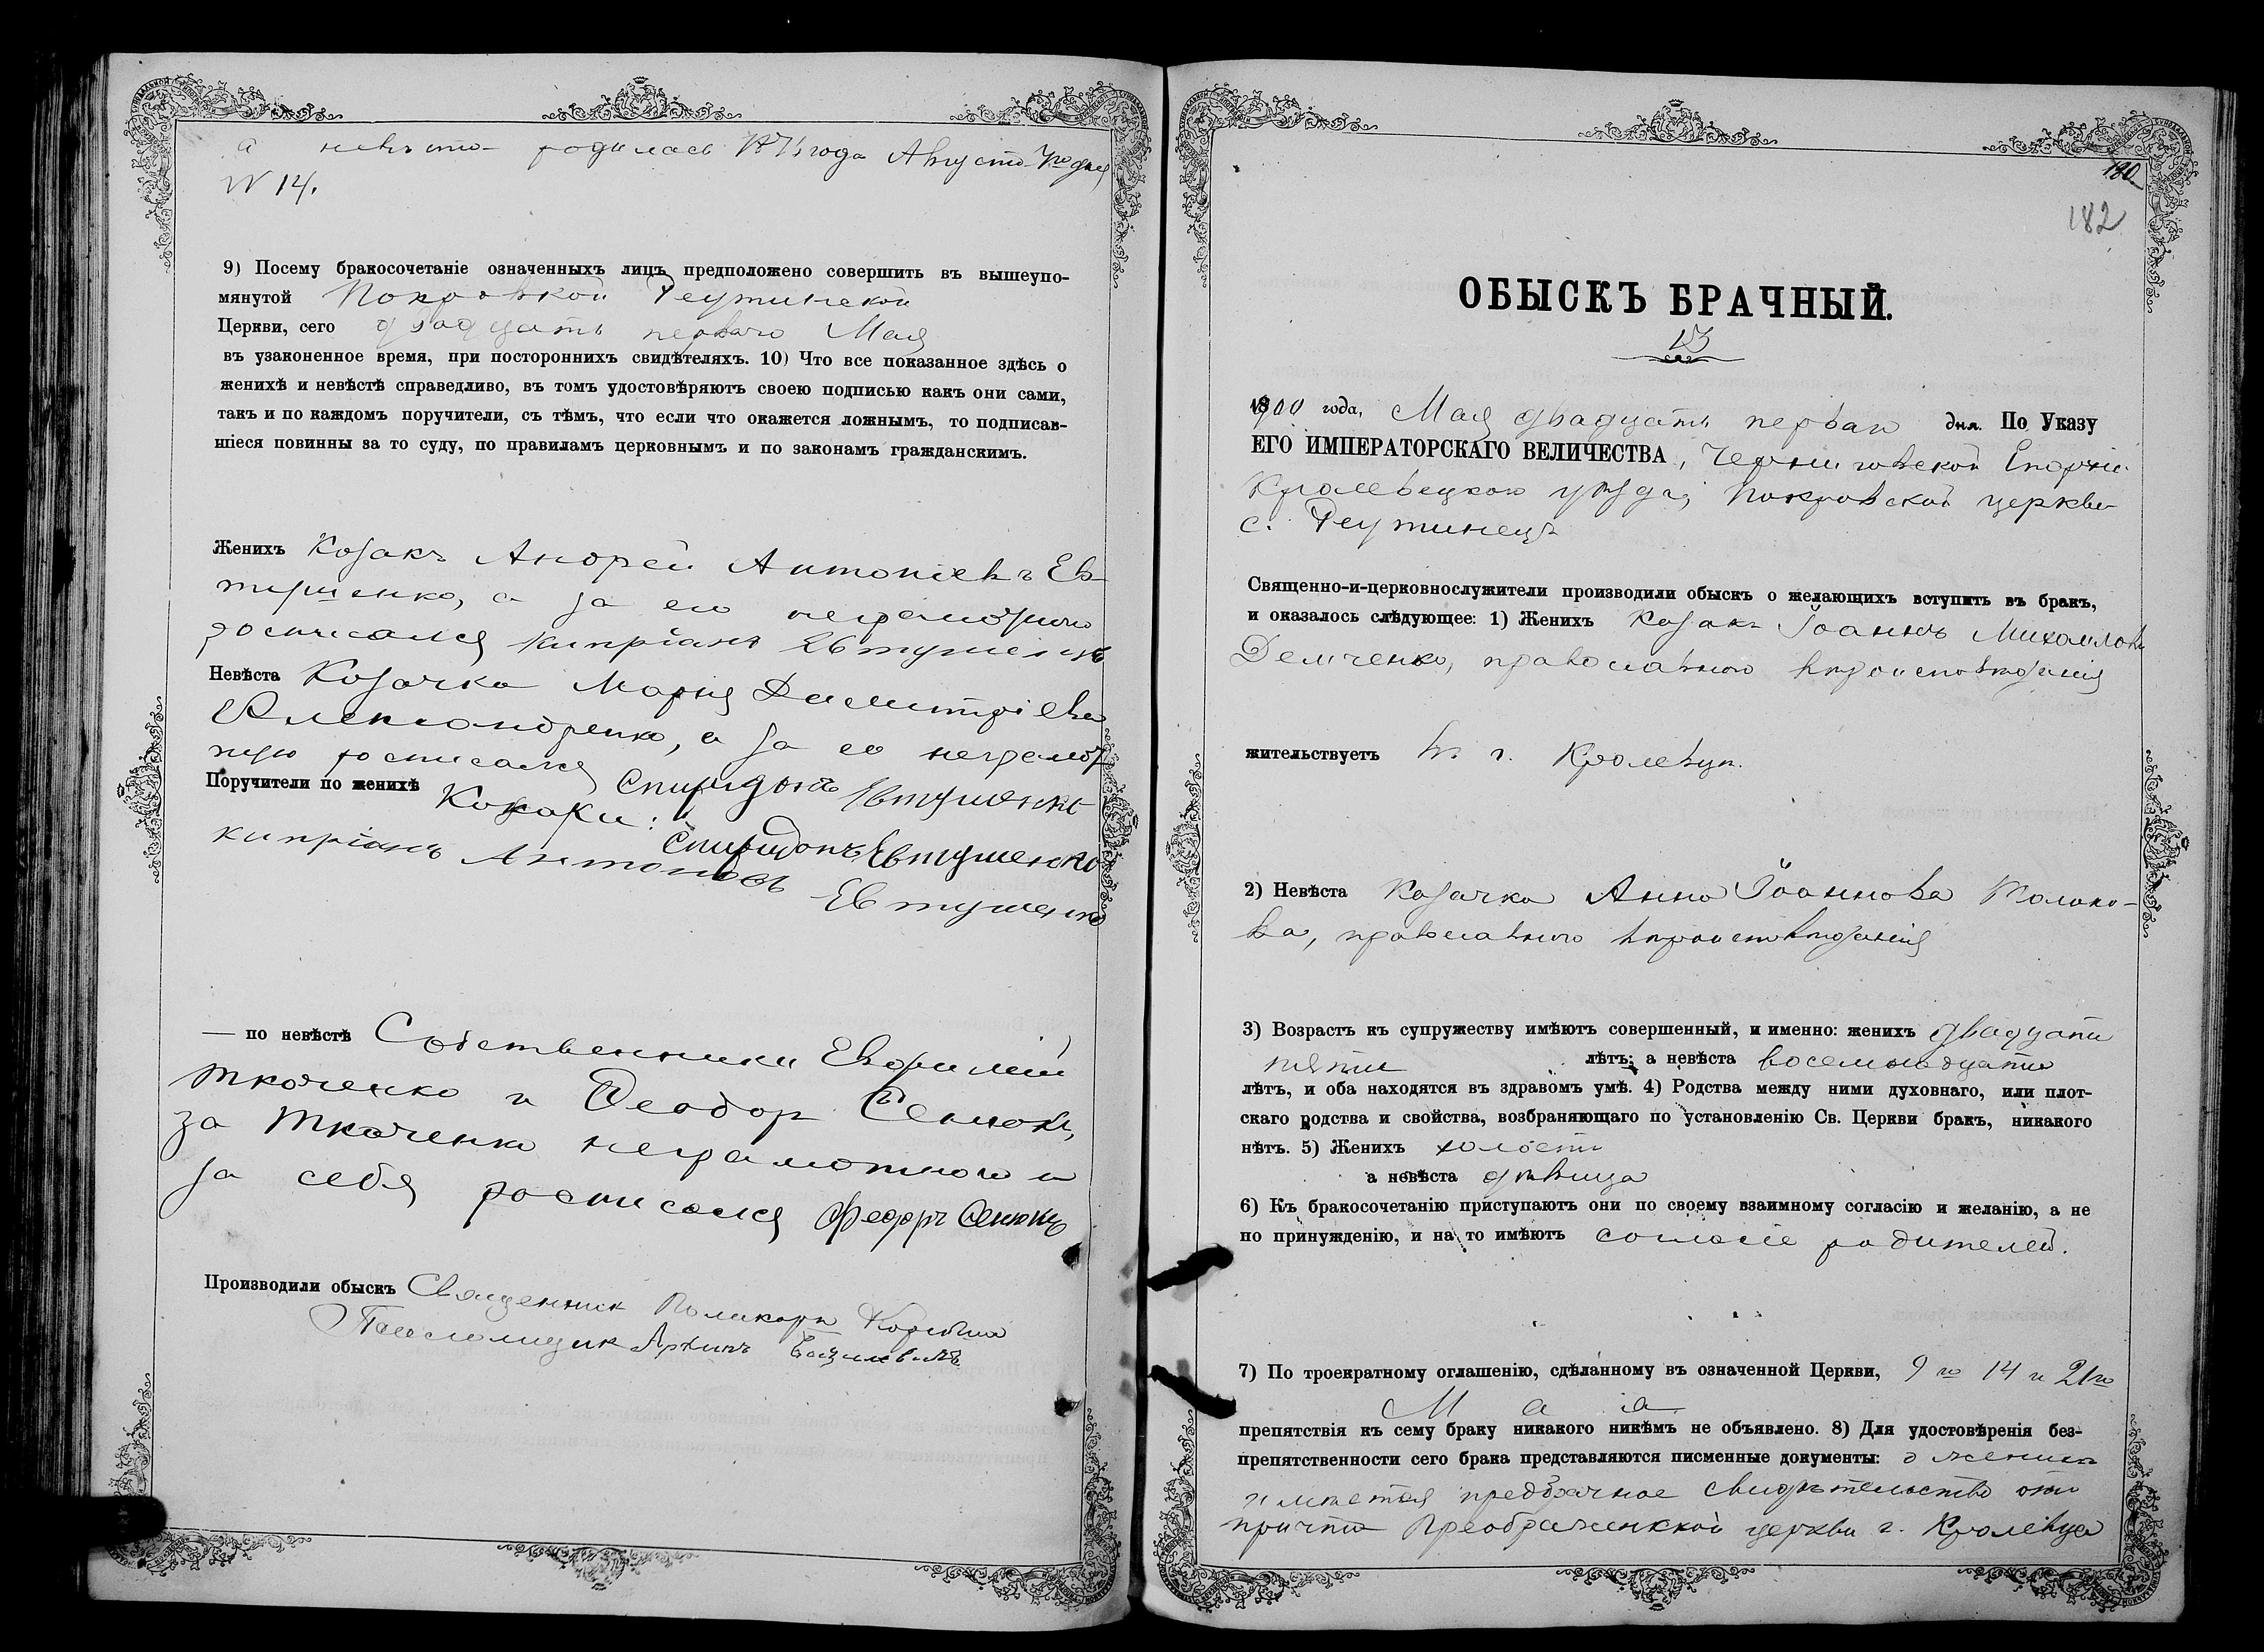 а невѣста родилась года Августа дня
№ 14.
9) Посему бракосочетаніе означенныхъ лицъ предположено совершить въ вышеупо-
мянутой Покровской Реутинской
Церкви, сего двадцать перваго Мая
въ узаконенное время, при постороннихъ свидѣтеляхъ. 10) Что все показанное здѣсь о
женихѣ и невѣстѣ справедливо, въ томъ удостовѣряютъ своею подписью какъ они сами,
такъ и по каждомъ поручители, съ тѣмъ, что если что окажется ложнымъ, то подписав-
шіеся повинны за то суду, по правиламъ церковнымъ и по законамъ гражданскимъ.
Женихъ Козакъ Андрей Антоніевъ Ев-
тушенко, а за его неграмотного
росписался Кипріанъ Евтушенко
Невѣста Козачка Марія Димитріева
Александренко, а за ее неграмот
ную росписался Спиридонъ Евтушенко
Поручители по женихѣ Козаки: Спиридонъ Евтушенко
Кипріанъ Антоновъ Евтушенко
— по невѣстѣ Собственники Евфимій
Ткаченко и Феодор Сенюкъ,
за Ткаченко неграмотного и
за себя росписался Федоръ Сенюкъ
Производили обыскъ Священник Поликарп
Псаломщик Архипъ
180
182
ОБЫСКЪ БРАЧНЫЙ.
13
1900 года, Мая двадцать перваго дня. По Указу
ЕГО ИМПЕРАТОРСКАГО ВЕЛИЧЕСТВА, Черниговской Епархіи
Кролевецкого уѣзда, Покровской церкви
с. Реутинецъ
Священно-и-церковнослужители производили обыскъ о желающихъ вступить въ бракъ,
и оказалось слѣдующее: 1) Женихъ Козакъ Іоаннъ Михаиловъ
Демченко, православного вѣроисповѣданія
жительствуетъ въ г. Кролевцѣ.
2) Невѣста Козачка Анна Іоаннова Толоко-
ва, православного вѣроисповѣданія
3) Возрастъ къ супружеству имѣютъ совершенный, и именно: женихъ двадцати
пяти лѣтъ; а невѣста восемнадцати
лѣтъ, и оба находятся въ здравомъ умѣ. 4) Родства между ними духовнаго, или плот-
скаго родства и свойства, возбраняющаго по установленію Св. Церкви бракъ, никакого
нѣтъ. 5) Женихъ холостъ
а невѣста дѣвица
6) Къ бракосочетанію приступаютъ они по своему взаимному согласію и желанію, а не
по принужденію, и на то имѣютъ согласіе родителей.
7) По троекратному оглашенію, сдѣланному въ означенной Церкви, 9 го 14 и 21 го
Мая
препятствія къ сему браку никакого никѣмъ не объявлено. 8) Для удостовѣренія без-
препятственности сего брака представляются писменные документы: о женихѣ
имѣется предбрачное свидѣтельство отъ
причта Преображенской церкви г. Кролевца